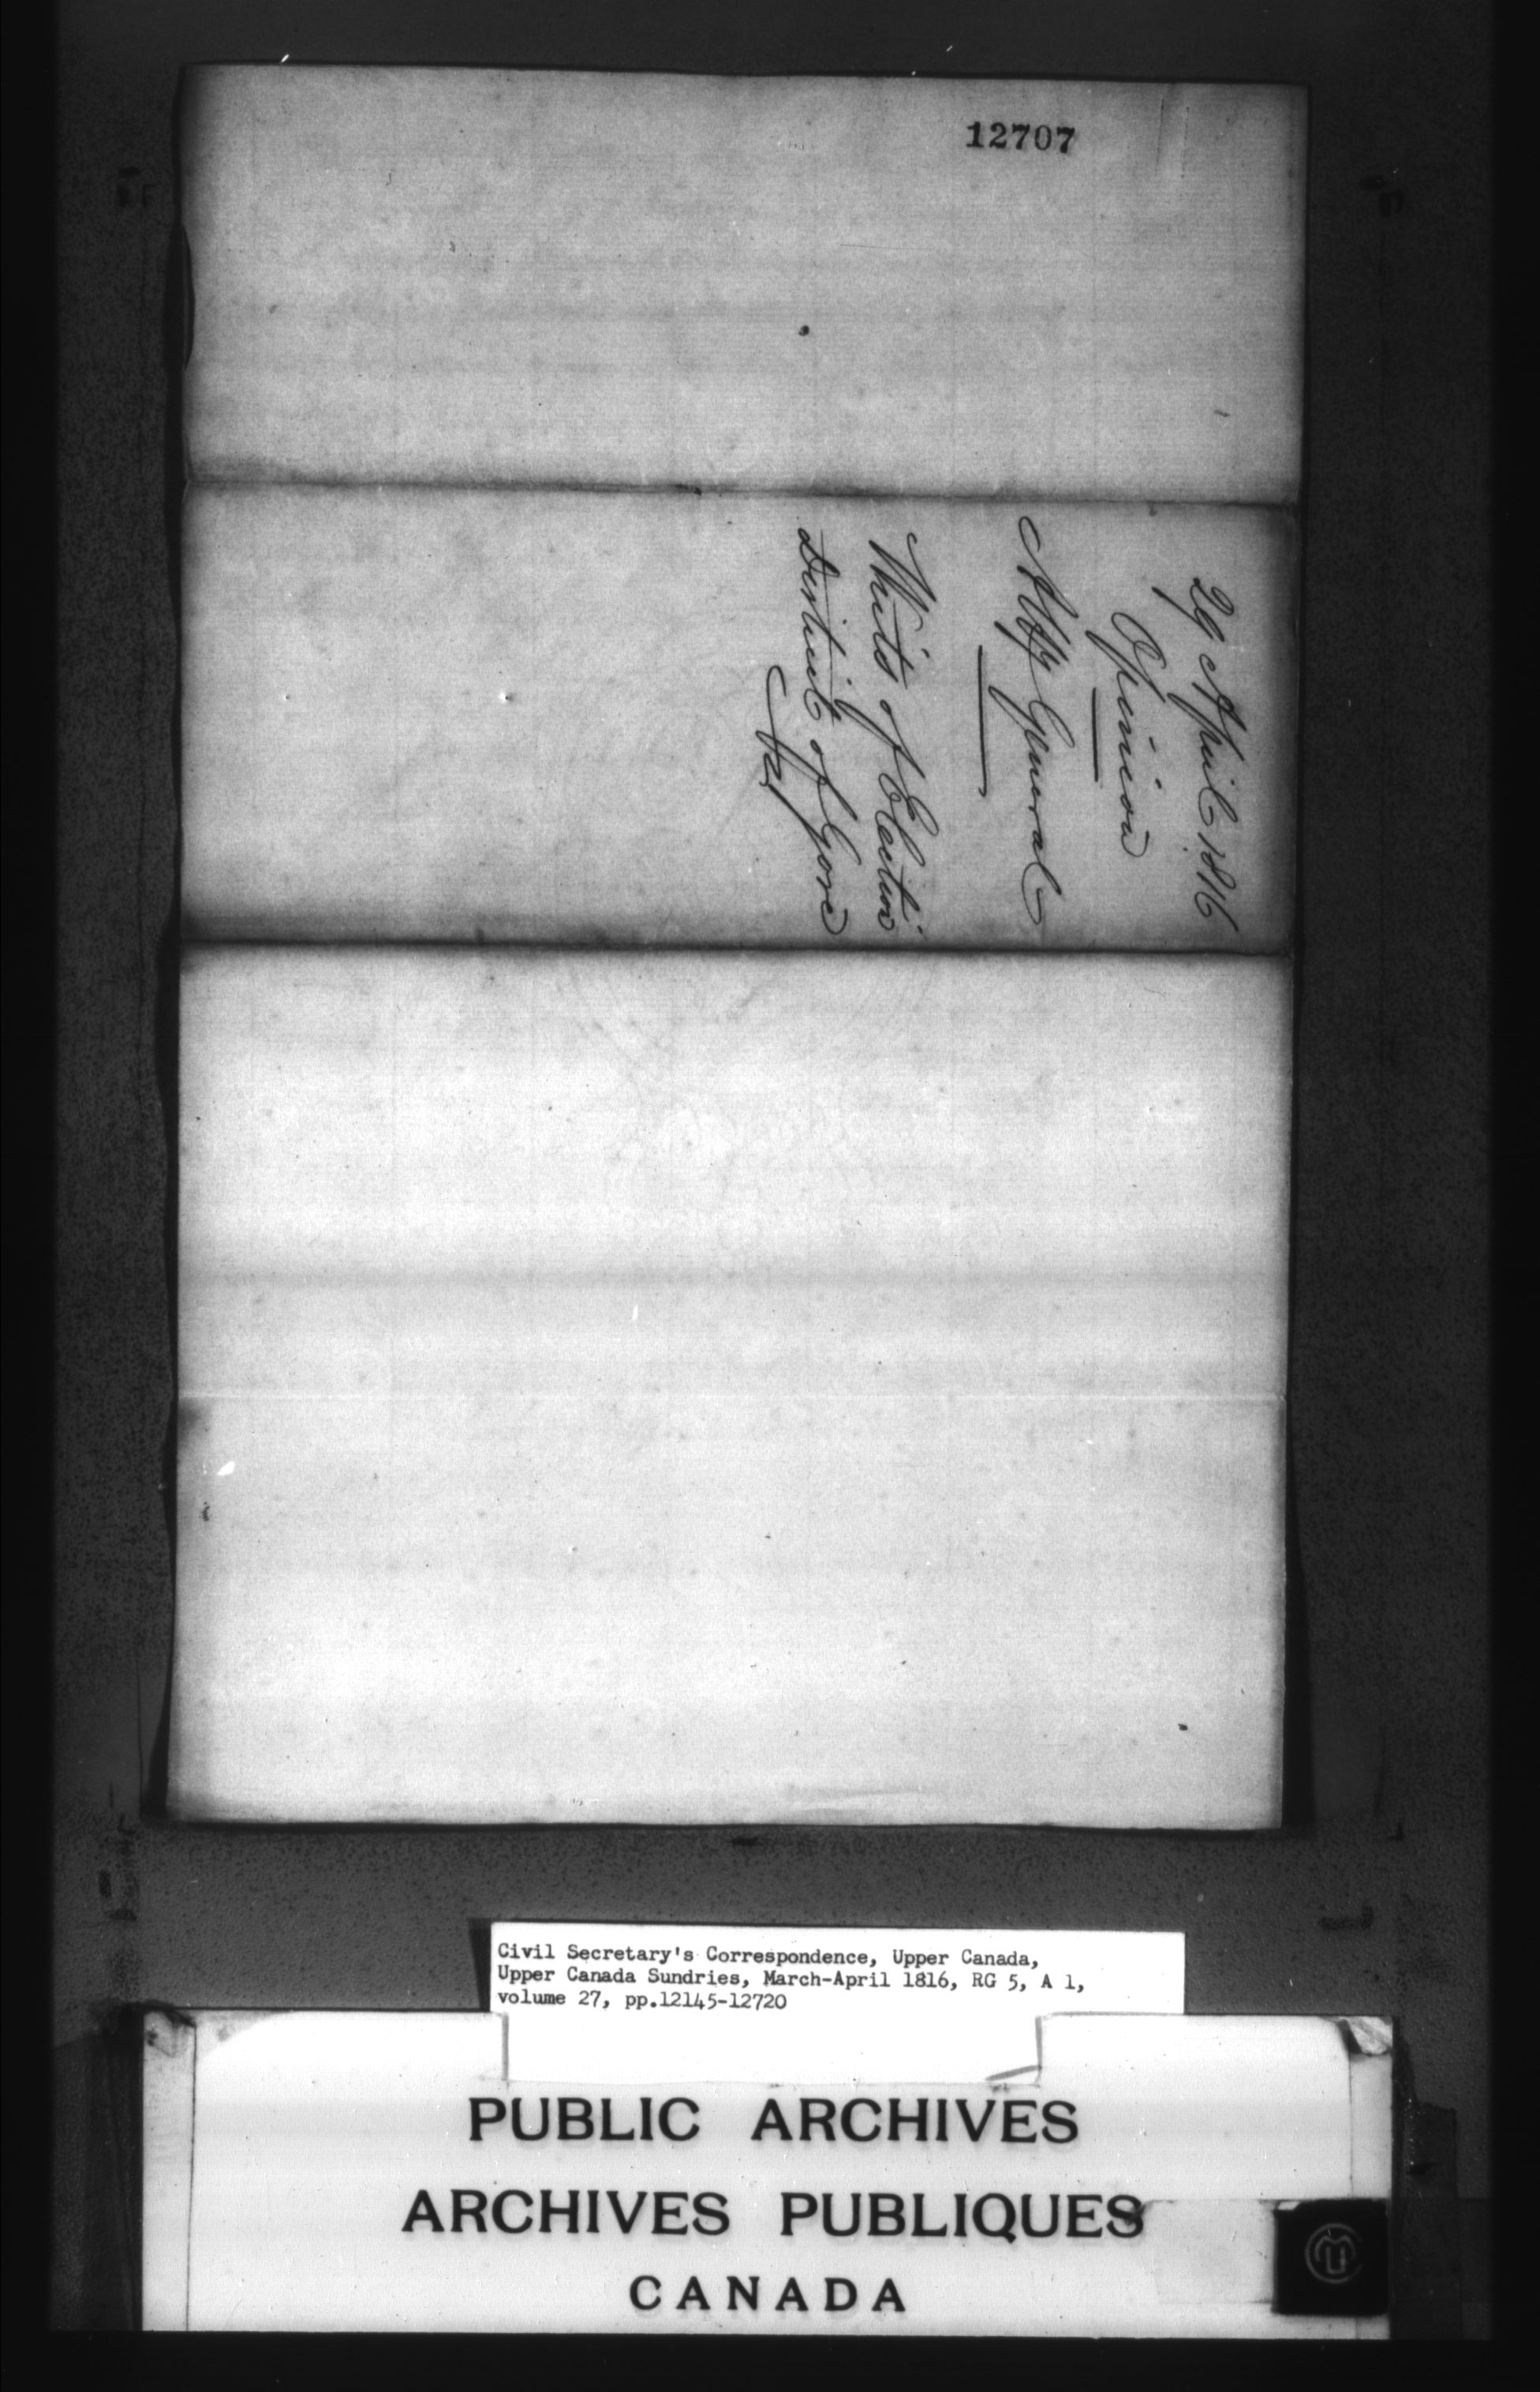 12707
29 April 1816
Opinion
Atty General
Writs of Election
District of Gore
Civil Secretary's Correspondence, Upper Canada,
Upper Canada Sundries, March-April 1816, RG 5, A 1,
volume 27, pp.12145-12720
PUBLIC ARCHIVES
ARCHIVES PUBLIQUES
CANADA